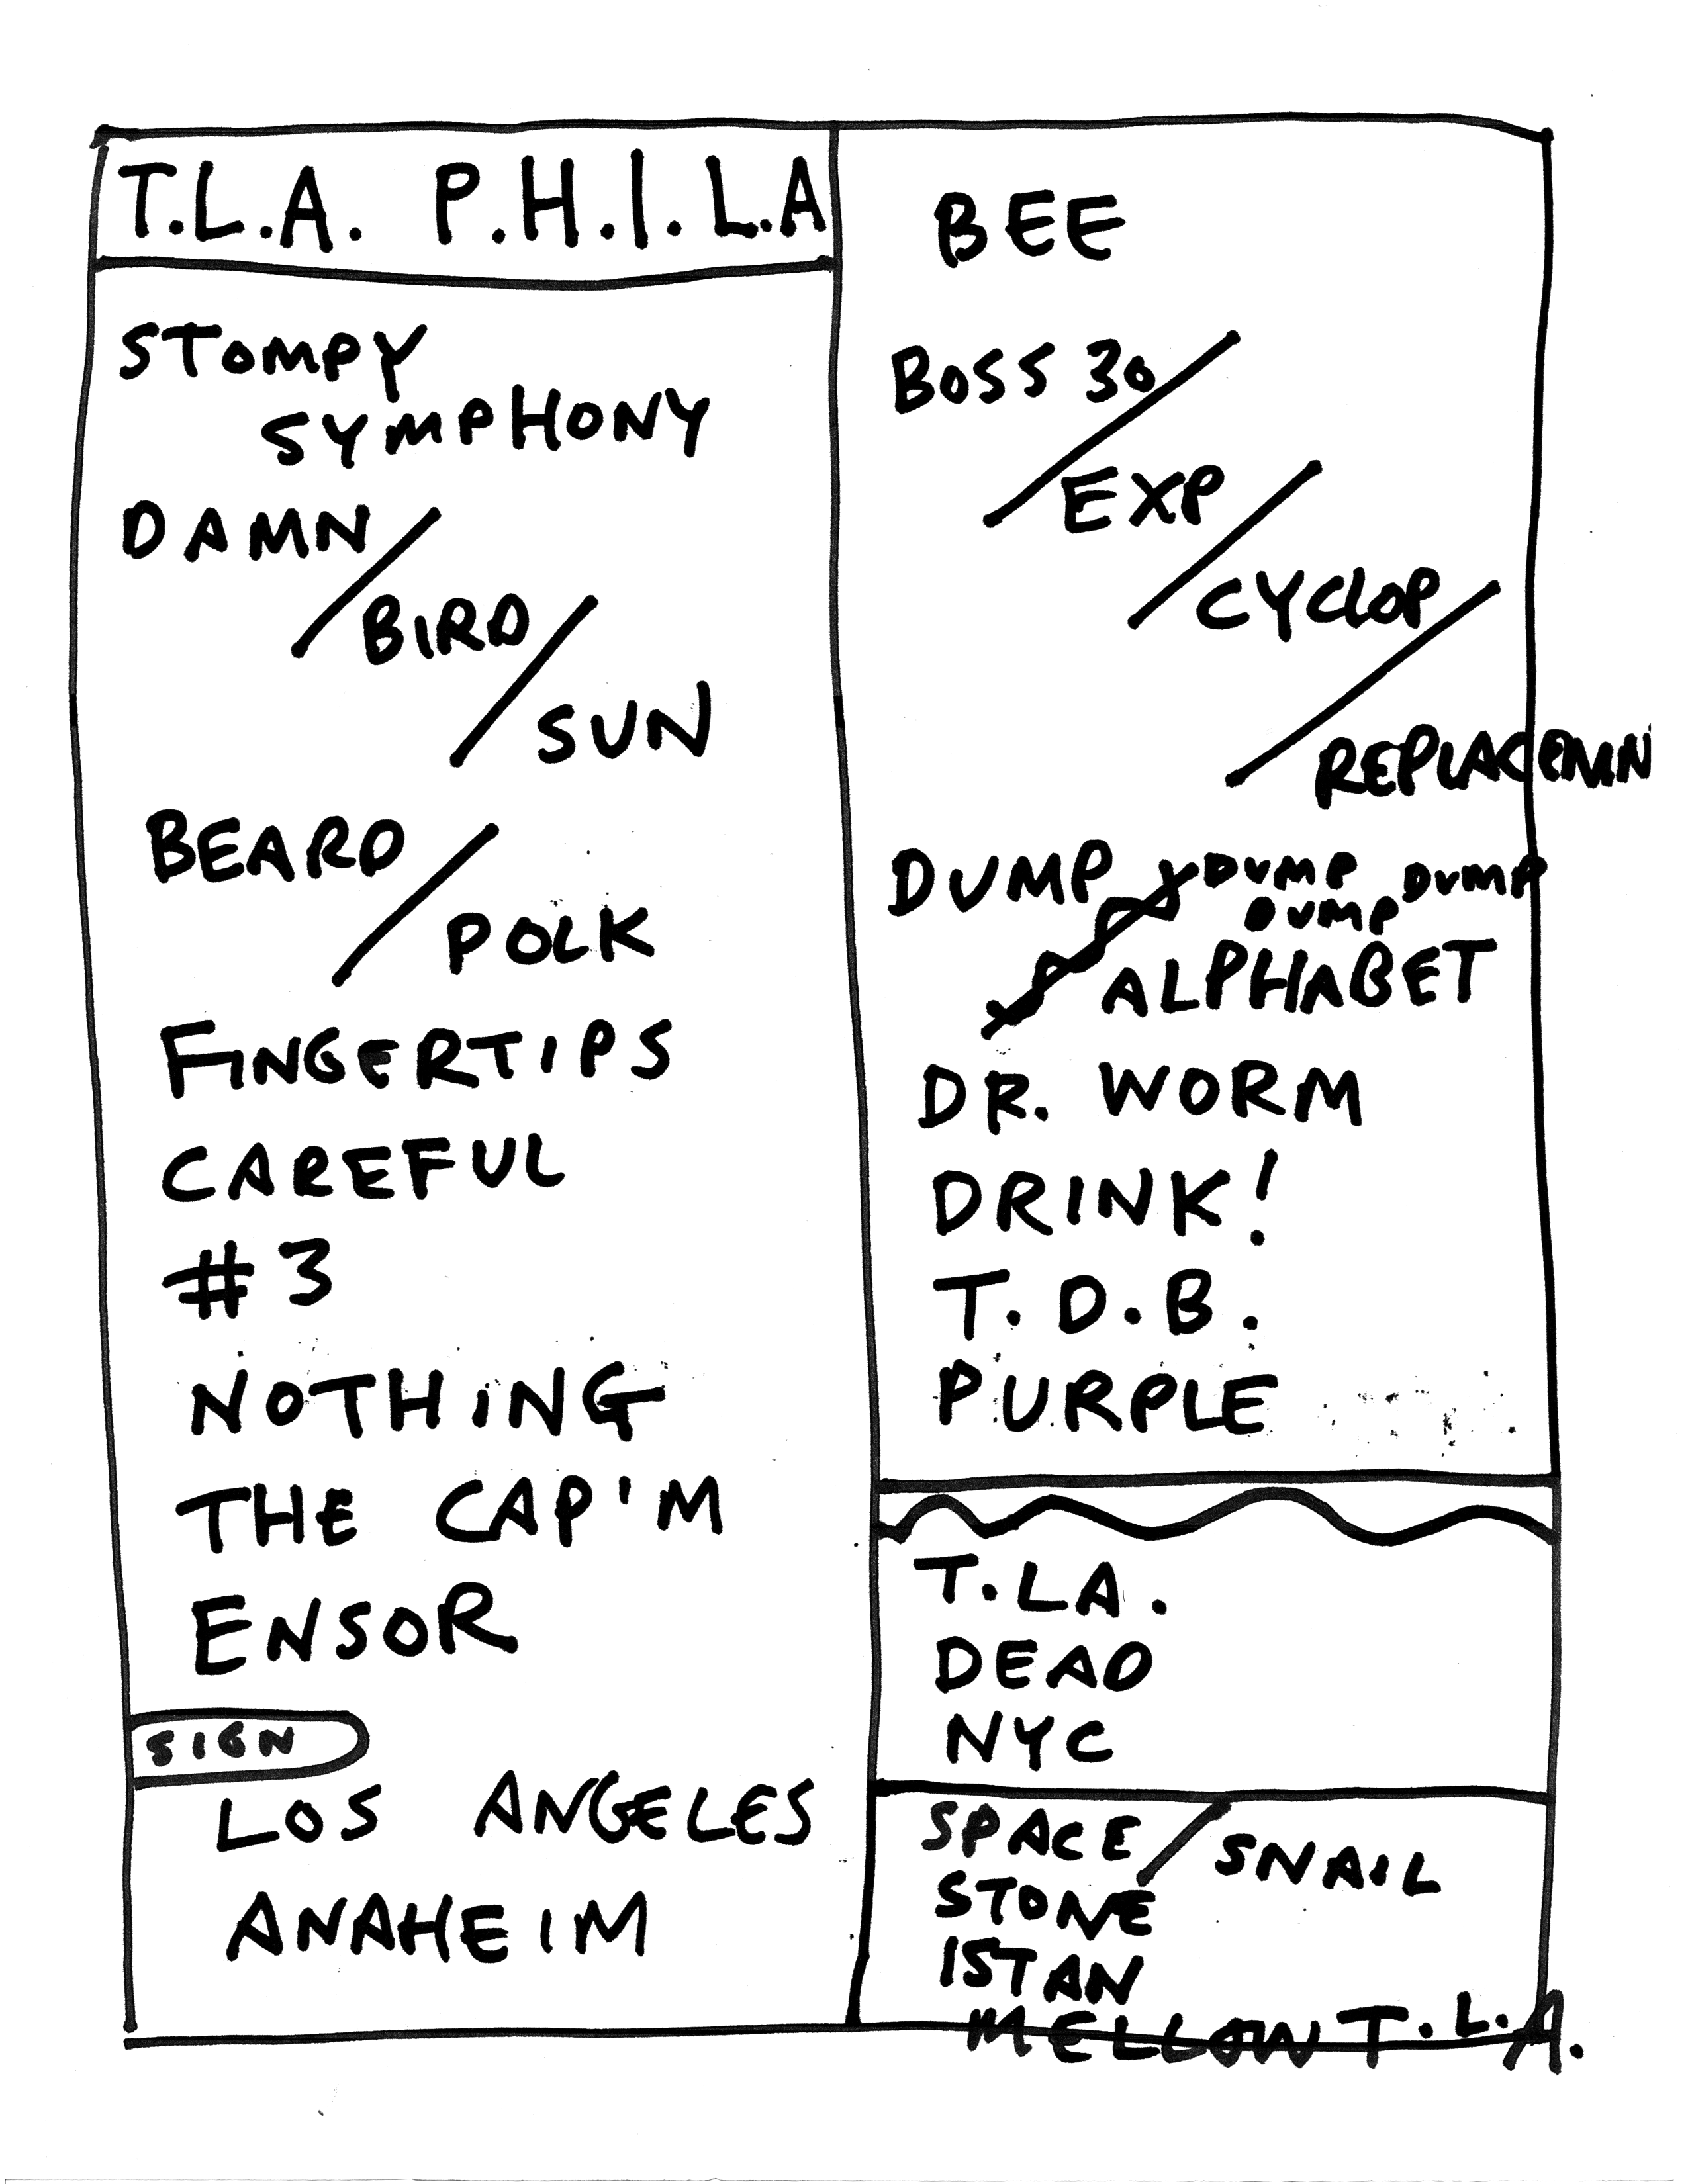 T.L.A. P.H.I.L.A
STOMPY
SYMPHONY
DAMN/
BIRD/
SUN
BEARD/
POLK
FINGERTIPS
CAREFUL
#3
NOTHING
THE CAP'M
ENSOR
SIGN
LOS ANGELES
ANAHEIM
BEE
BOSS 30/
EXP/
CYCLOP/
REPLACEMN
DUMP DUMP DUMP
DUMP
ALPHABET
DR. WORM
DRINK!
T.D.B.
PURPLE
T.LA.
DEAD
NYC
SPACE/SNAIL
STONE
ISTAN
MELLOW T.L.A.